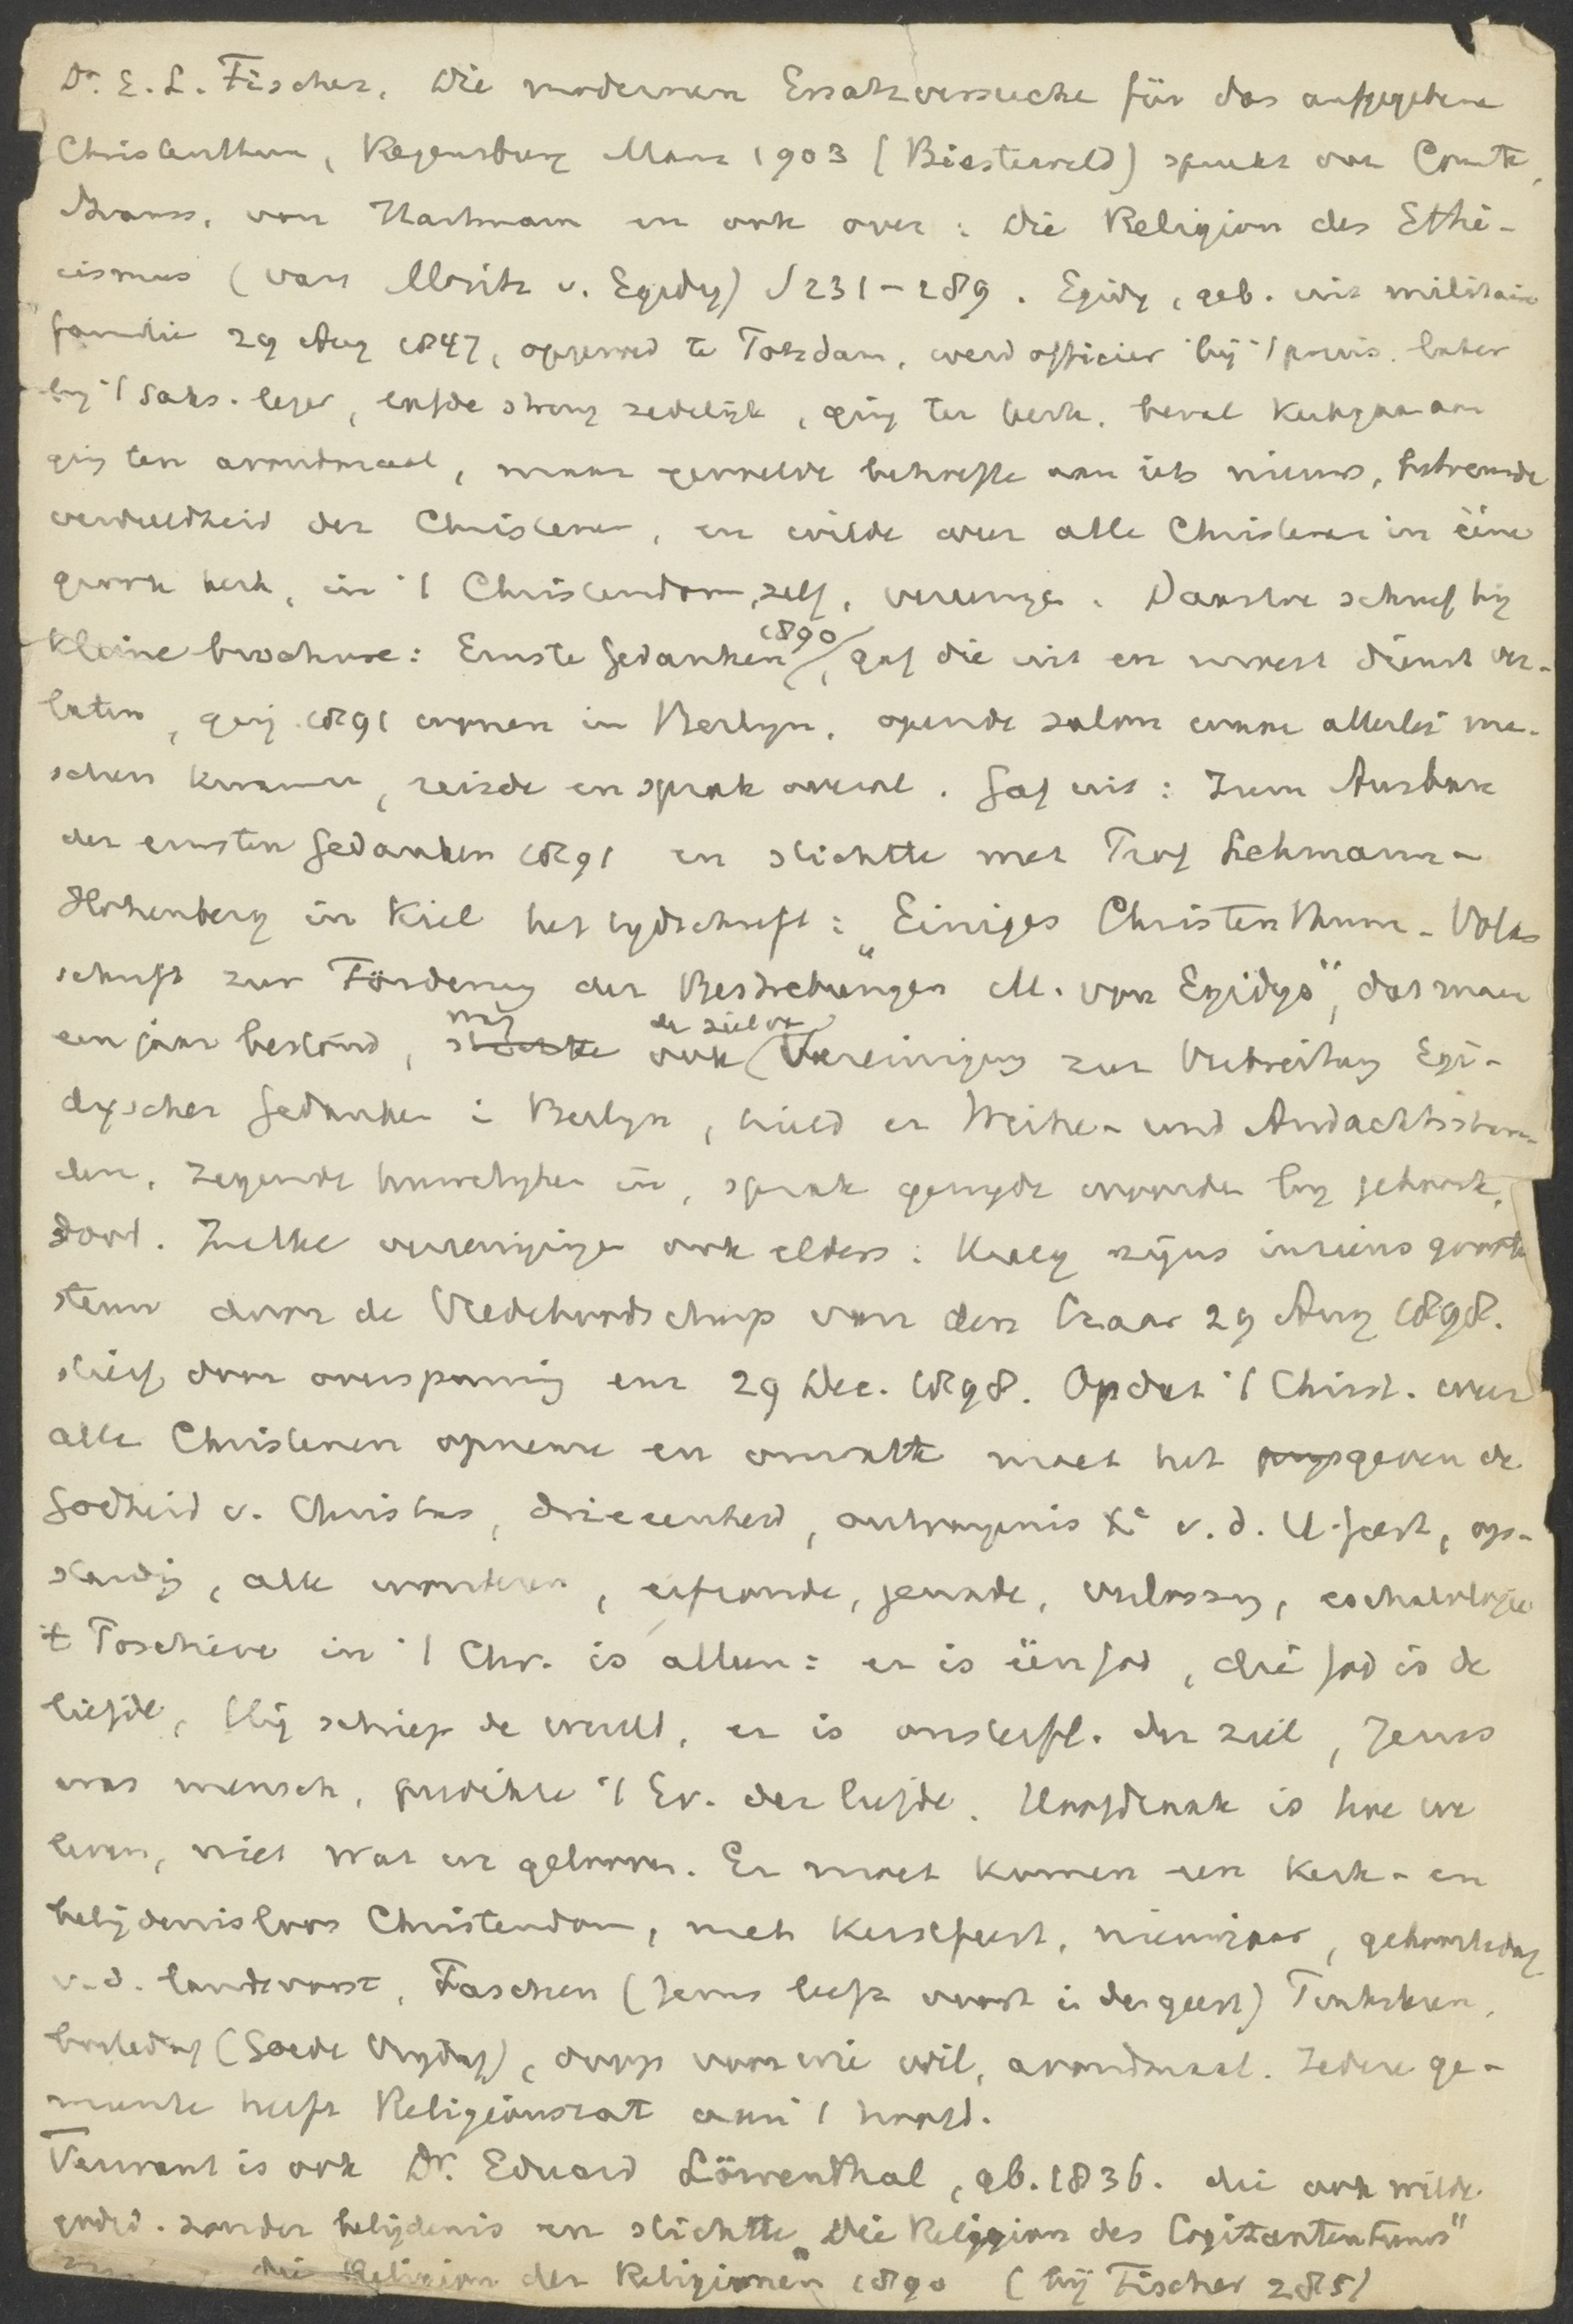 Dr. E. L. Fischer, Die modernen Ersatzversuche für das aufgegebene
Christenthum, Regensburg Manz 1903 (Biesterveld) spreekt van Comte,
Strauss, von Hartmann en ook over: Die Religion des Ethi-
cismus (van Moritz v. Egidy) S 231-289. Egidy, geb. uit militaire
familie 29 Aug 1847, opgevoed te Potsdam, werd officier bij 't pruis. later
bij 't Saks. leger, leefde streng zedelijk, ging ter kerk, beval kerkgaan aan
ging ten avondmaal, maar gevoelde behoefte aan iets nieuws, betreurde
verdeeldheid der Christenen, en wilde weer alle Christenen in ééne
groote kerk, in 't Christendom zelf, vereenigen. Daartoe schreef hij
kleine brochure: Ernste Gedanken 1890, gaf die uit en moest dienst ver-
laten, ging 1891 wonen in Berlijn, opende salon waar allerlei men-
schen kwamen, reisde en sprak overal. Gaf uit: Zum Ausbau
der ernsten Gedanken 1891 en stichtte met Prof Lehmann-
Hohenberg in Kiel het tijdschrift: „Einiges Christenthum - Volks
schrift zur Förderung der Bestrebungen M. von Egidys", dat maar
een jaar bestond, was ook de ziel van Vereinigung zur Verbreitung Egi-
dyscher Gedanken in Berlijn, hield er Weihe- und Andachtsstun-
den, zegende huwelijken in, sprak gewijde woorden bij geboorte,
dood. Zulke vereenigingen ook elders. Kreeg zijns inziens groote
steun door de Vredeboodschap van den Czaar 29 Aug 1898.
stierf door overspanning enz 29 Dec. 1898. Opdat 't Christ. weer
alle Christenen opneme en omvatte moet het prijsgeven de
Godheid v. Christus, drieeenheid, ontvangenis Xi v. d. H. Geest, op-
standing, alle wonderen, erfzonde, genade, verlossing, eschatologie
't Positieve in 't Chr. is alleen: er is één God, die God is de
liefde, Hij schiep de wereld, er is onsterfl. der ziel, Jezus
was mensch, predikte 't Ev. der liefde. Hoofdzaak is hoe we
leven, niet wat we gelooven. Er moet komen een kerk- en
belijdenisloos Christendom, met kerstfeest, nieuwjaar, geboortedag
v. d. landsvorst, Paschen (Jezus leeft voort in der geest) Pinksteren,
boetedag (Goede Vrijdag), doop voor wie wil, avondmaal. Iedere ge-
meente heeft Religionsrat aan 't hoofd.
Verwant is ook Dr. Eduard Löwenthal, gb. 1836. die ook wilde
godsd. zonder belijdenis en stichtte „Die Religion des Cogitantentums"
die Religion der Religionen 1890 (bij Fischer 285)